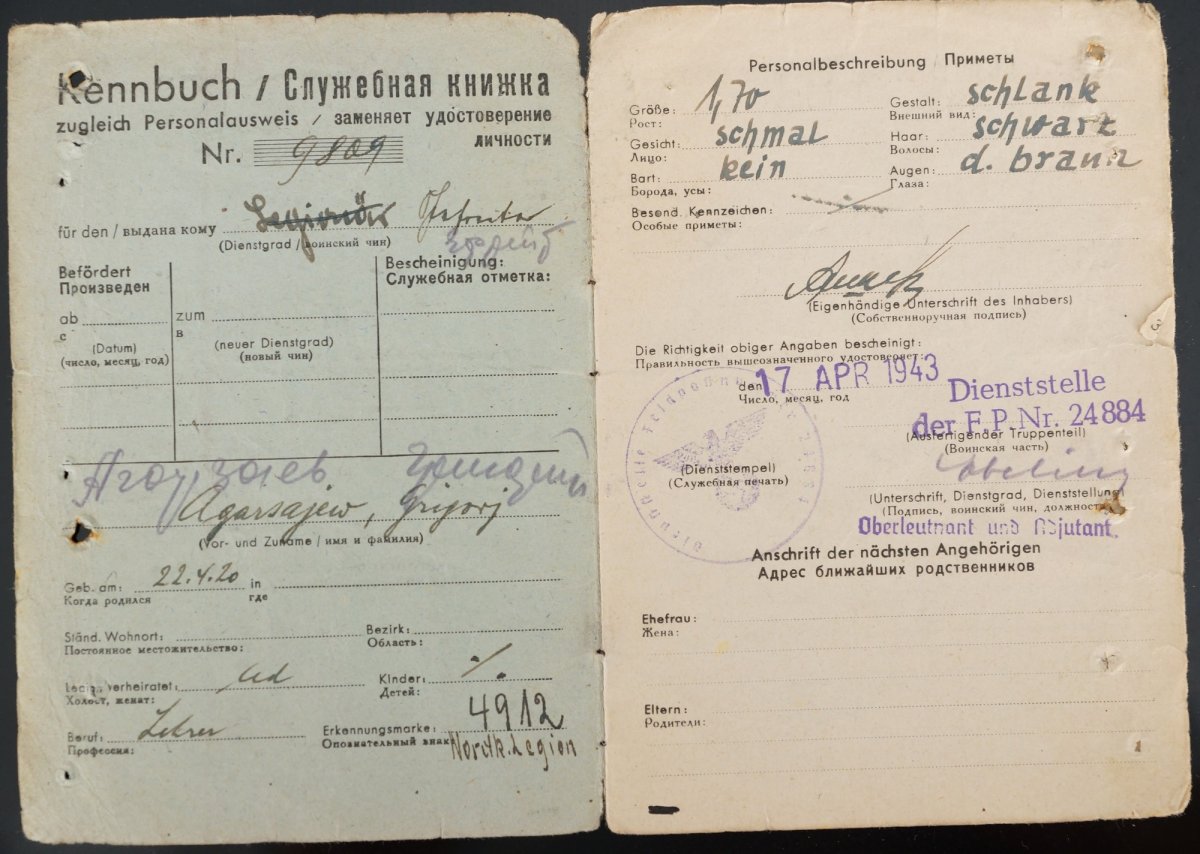 Kennbuch / Служебная книжка
zugleich Personalausweis / заменяет удостоверение
личности
Nr. 9809
für den / выдана кому Legionär Gefreiter
(Dienstgrad / воинский чин)
Befördert
Произведен
Bescheinigung:
Служебная отметка:
ab
с
zum
в
(Datum)
(число, месяц, год)
(neuer Dienstgrad)
(новый чин)
Agarsajew, Grigorj
(Vor- und Zuname / имя и фамилия)
Geb. am: 22.4.20 in
Когда родился где
Ständ. Wohnort: Bezirk:
Постоянное местожительство: Область:
verheiratet: led Kinder: ./.
Холост, женат: Детей:
Beruf: Lehrer Erkennungsmarke: 4912
Профессия: Опознавательный знак Nordk. Legion
Personalbeschreibung / Приметы
Größe: 1,70 Gestalt: schlank
Рост: Внешний вид:
Gesicht: schmal Haar: schwarz
Лицо: Волосы:
Bart: kein Augen: d. braun
Борода, усы: Глаза:
Besond. Kennzeichen:
Особые приметы:
(Eigenhändige Unterschrift des Inhabers)
(Собственноручная подпись)
Die Richtigkeit obiger Angaben bescheinigt:
Правильность вышеозначенного удостоверяет:
den 17 APR 1943
Число, месяц, год
Dienststelle
der F.P.-Nr. 24884
(Ausfertigender Truppenteil)
(Воинская часть)
(Dienststempel)
(Служебная печать)
(Unterschrift, Dienstgrad, Dienststellung)
(Подпись, воинский чин, должность)
Oberleutnant und Adjutant.
Anschrift der nächsten Angehörigen
Адрес ближайших родственников
Ehefrau:
Жена:
Eltern:
Родители:
3